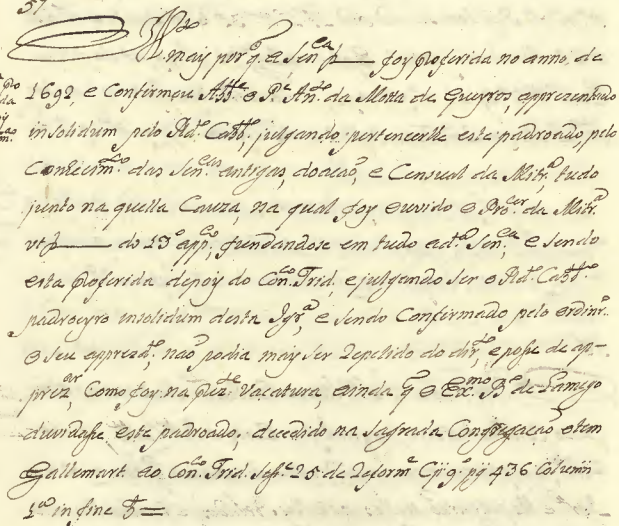 37
P.do
may porq̃. a Sen.ca p——— foy proferida no anno, de
1692, e Confirmou Abb.e o P.e An.to da Motta de Queyros, apprezentado
insolidum pelo Rd.o Cabb.o julgando, pertencerlhe este padroado, pelo
Conhecim.to das Sen.cas antigas, doacaõ, e Censual da Mitr.a, tudo
junto na quella Cauza, na qual foy ouvido o Pro.cor da Mitr.a
vt p——— do 13.o app; fundandose em tudo a d.a Sen.ca e sendo
esta proferida depoy do Con.co Trid. e julgando ser o Rd.o Cabb.o
padroeyro insolidum desta Igr.a, e sendo Confirmado pelo ordinr.o
o seu apprezd.o, naõ podia may ser repelido do dir.to, e posse de ap-
prez.ar, Como foy na prez.te Vacatura, ainda q̃ o Ex.mo B.o de Lamego
duvidasse este padroado, decedido na sagrada Congregacaõ e tem
Gallemart. ao Con.co Trid. sess.e 25. de reform.e Cp. 9. pg 436 Column
1.a in fine